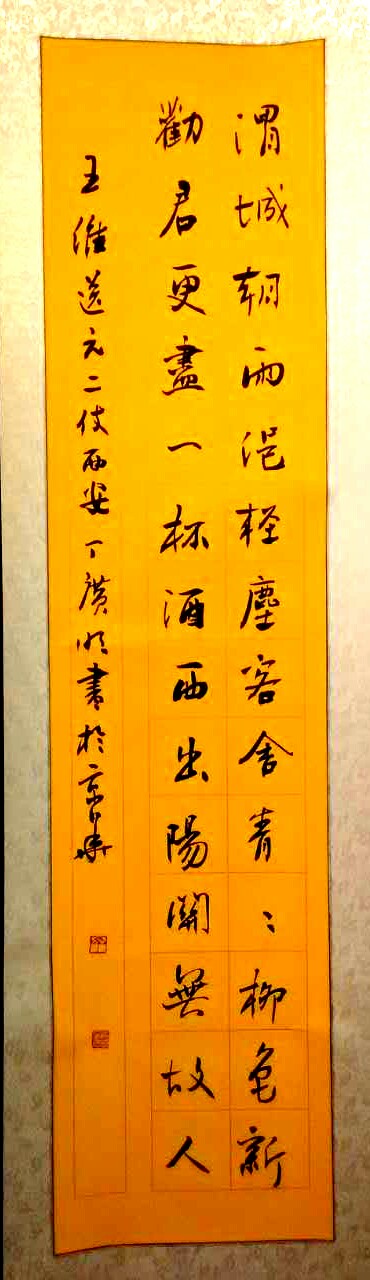 渭城朝雨浥輕塵客舍青〻柳色新
勸君更盡一杯酒西出陽關無故人
王維送元二使西安丁廣明書於京華